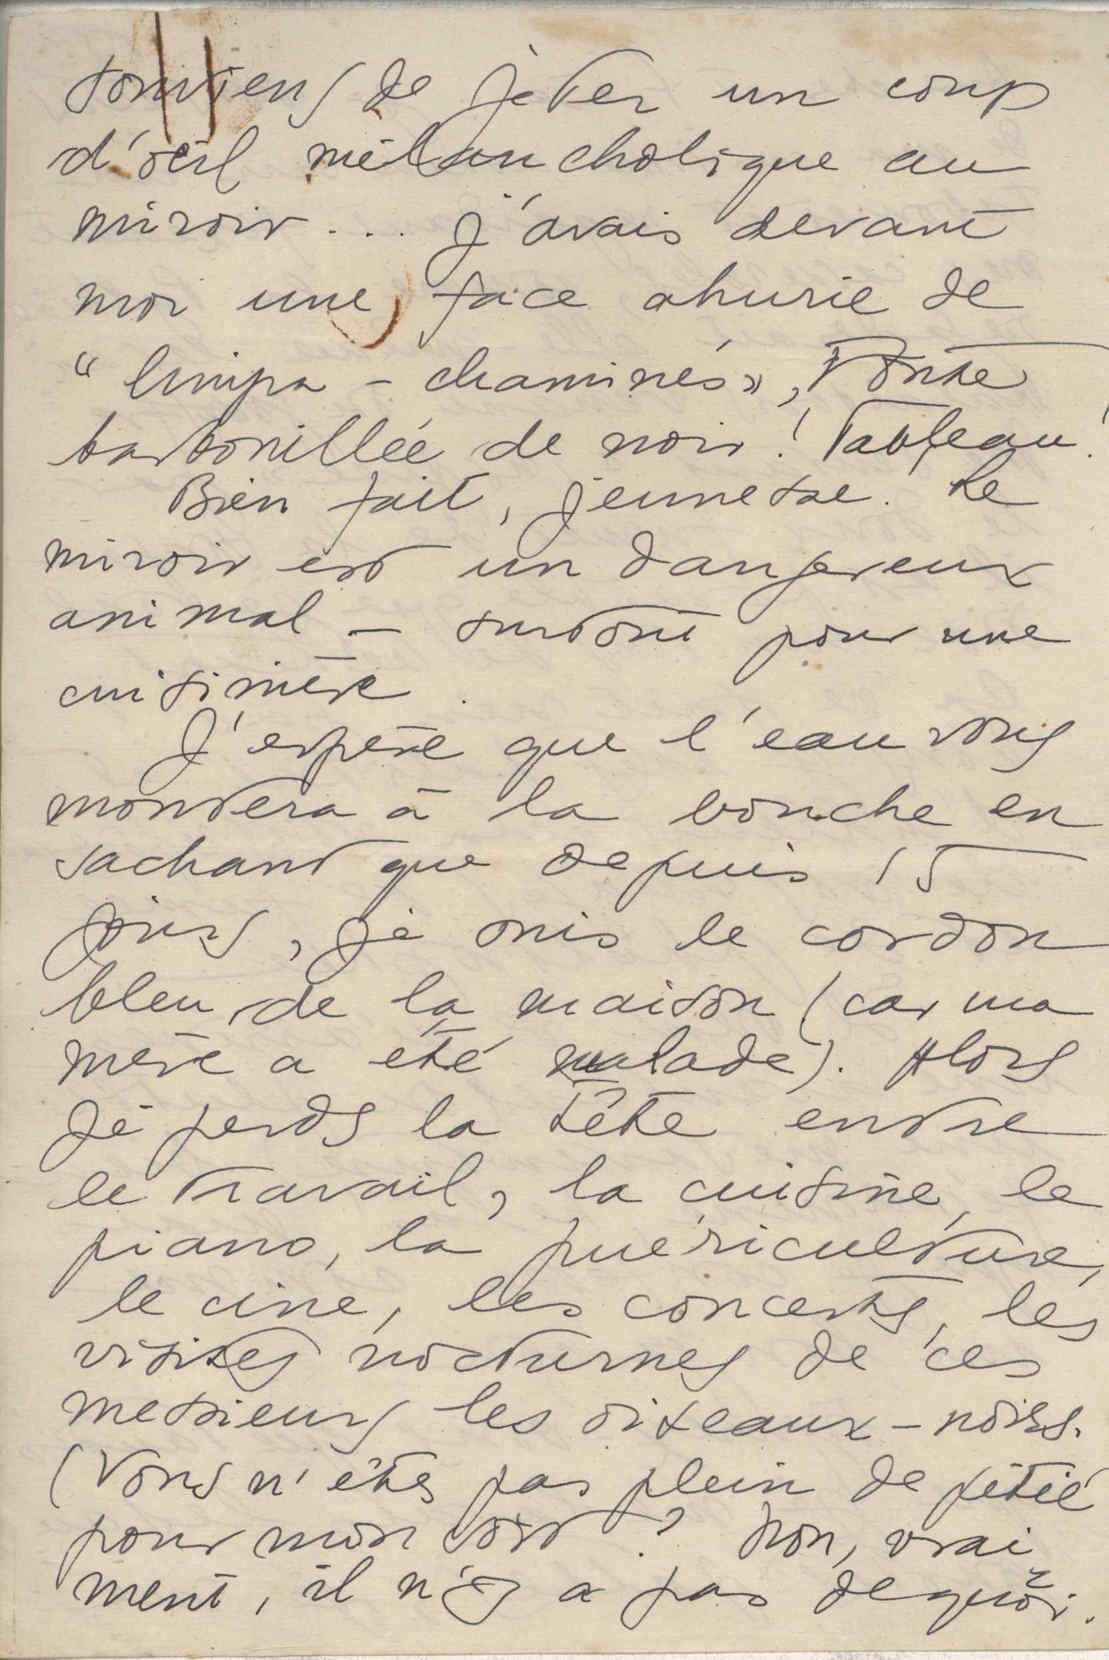 souviens de jeter un coup
d'œil mélancholique au
miroir... j'avais devant
moi une face ahurie de
"limpa - chaminés", toute
barbouillée de noir! Tableau!
Bien fait, jeunesse. Le
miroir est un dangereux
animal - surtout pour une
cuisinière.
J'espère que l'eau vous
montera à la bouche en
sachant que depuis 15
jours, je suis le cordon
bleu de la maison (car ma
mère a été malade). Alors
je perds la tête entre
le travail, la cuisine, le
piano, la puériculture,
le ciné, les concerts, les
visites nocturnes de ces
messieurs les oiseaux-noirs.
(Vous n'êtes pas plein de pitié
pour mon sort? Non, vrai
ment, il n'y a pas de quoi.